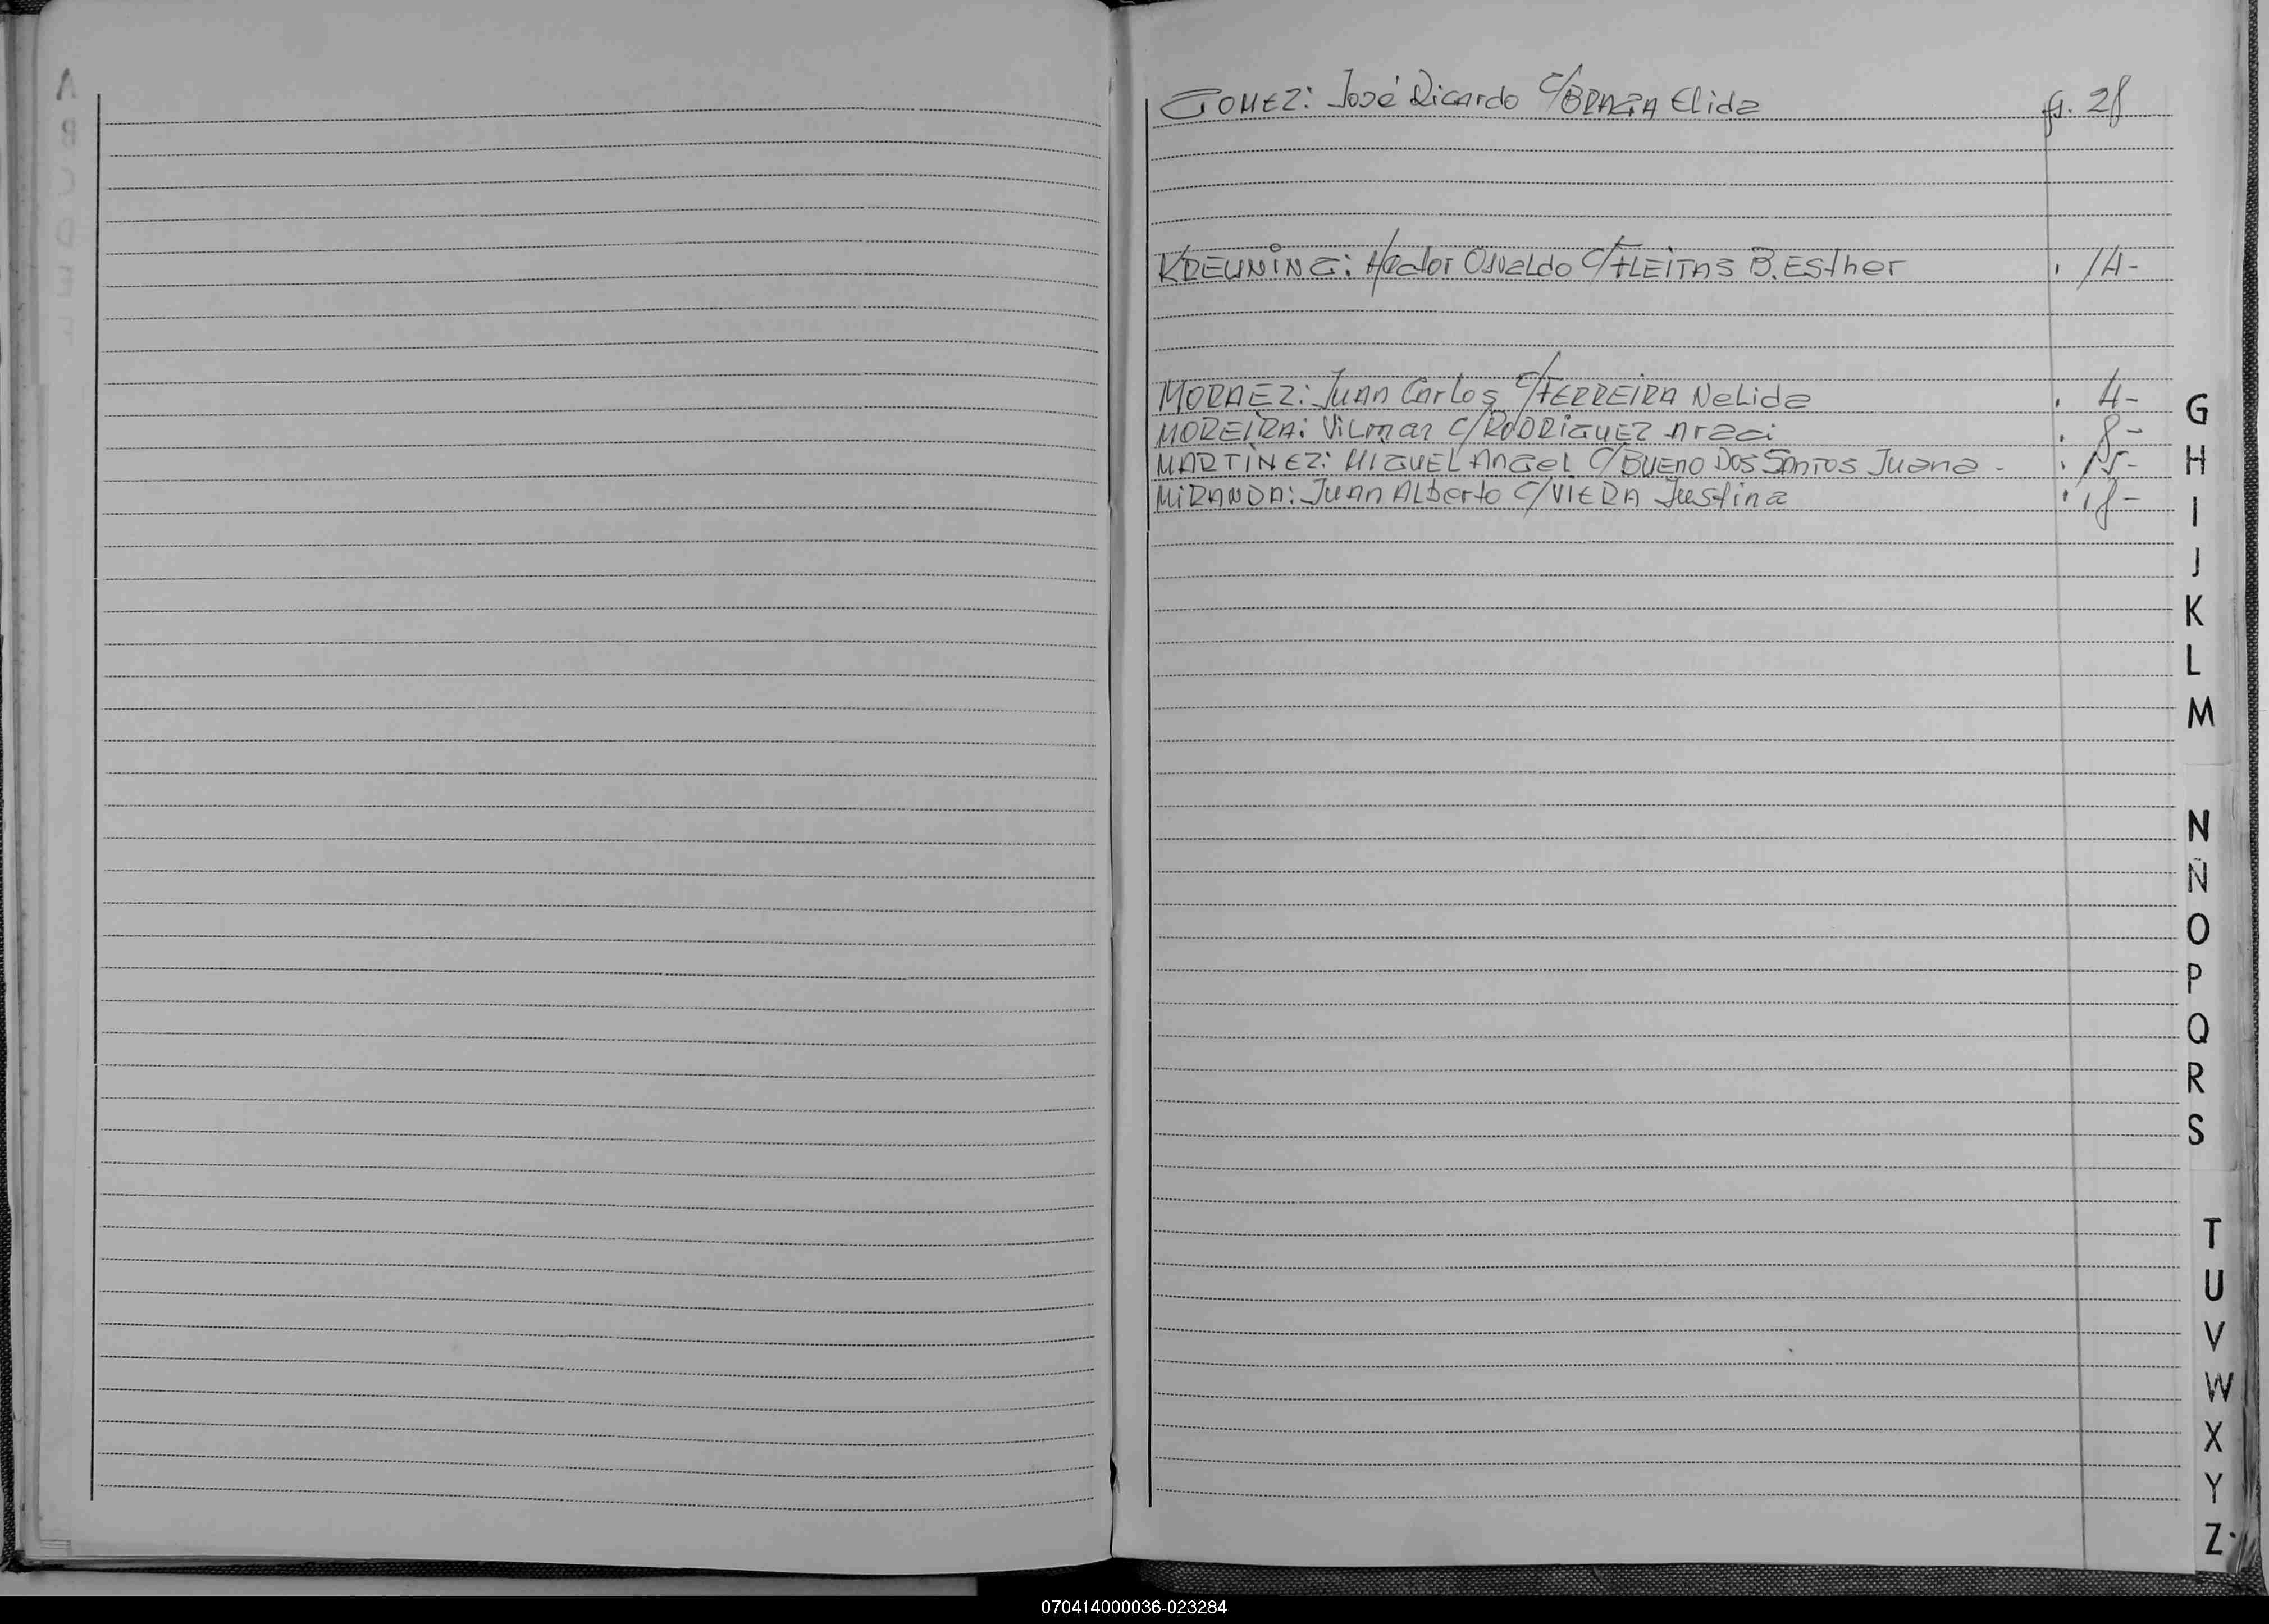 GOMEZ: José Ricardo C/BRAGA Elida fs. 28
KREUNING: Hector Osvaldo C/FLEITAS B. Esther " 14-
MORAEZ: Juan Carlos C/FERREIRA Nelida " 4-
MOREIRA: Vilmar C/RODRIGUEZ Araci " 8-
MARTINEZ: MIGUEL Angel C/BUENO DOS SANTOS Juana - " 15-
MIRANDA: Juan Alberto C/VIERA Justina " 18-
G
H
I
J
K
L
M
N
Ñ
O
P
Q
R
S
T
U
V
W
X
Y
Z
070414000036-023284